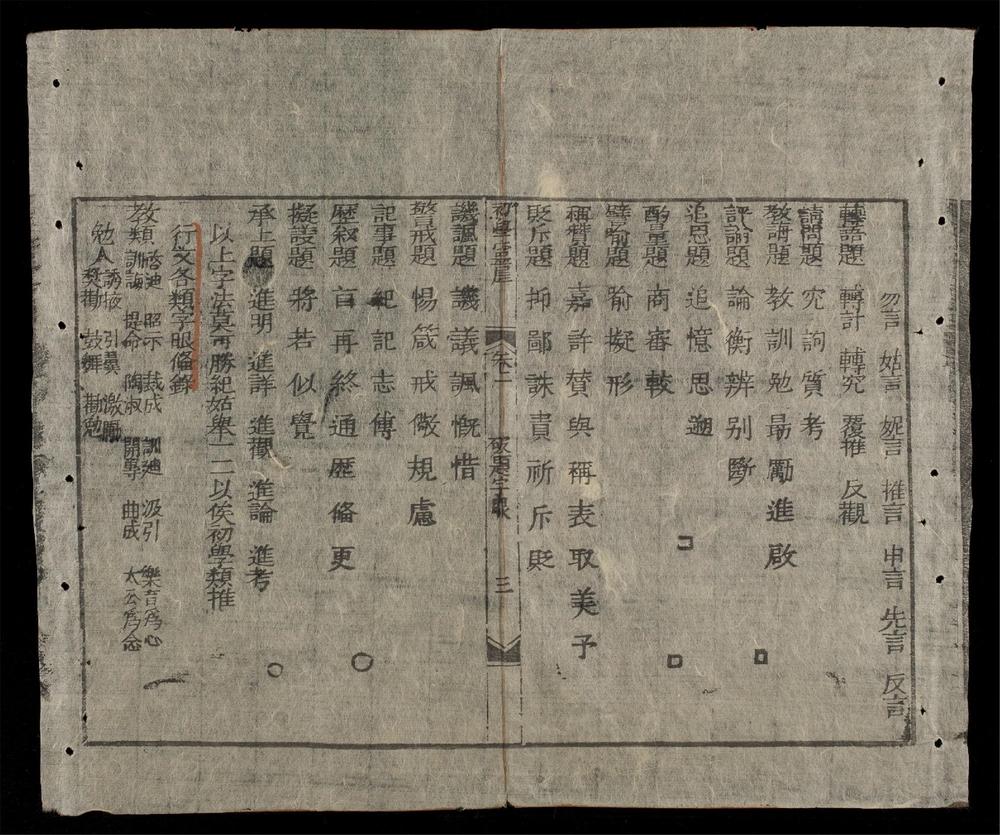 勿言 姑言 妮言 推言 申言 先言 反言
轉語題 轉計 轉究 覆推 反觀
請問題 究詢質考
教誨題 教訓勉勗勵進啟
評論題 論衡辨別斷
追思題 追憶思遡
酌量題 商審較
譬喻題 喻擬形
稱贊題 嘉許贊與稱表取美予
貶斥題 抑鄙誅責斥貶
初學 卷一 破題字眼 三
譏諷題 譏議諷慨惜
警戒題 惕箴戒儆規慮
記事題 紀記志傳
歷叙題 首再終通歷俻更
擬設題 將若似覺
承上題 進明 進詳 進觀 進論 進考
以上字法莫可勝紀姑舉一二以俟初學類推
行文各類字眼俻錄
教類 啓迪 昭示 裁成 訓迪 汲引 樂育爲心
訓誨 提命 陶淑 開導 曲成 大公爲念
勉人 誘掖 引翼 激勵
獎勸 鼓舞 勸勉